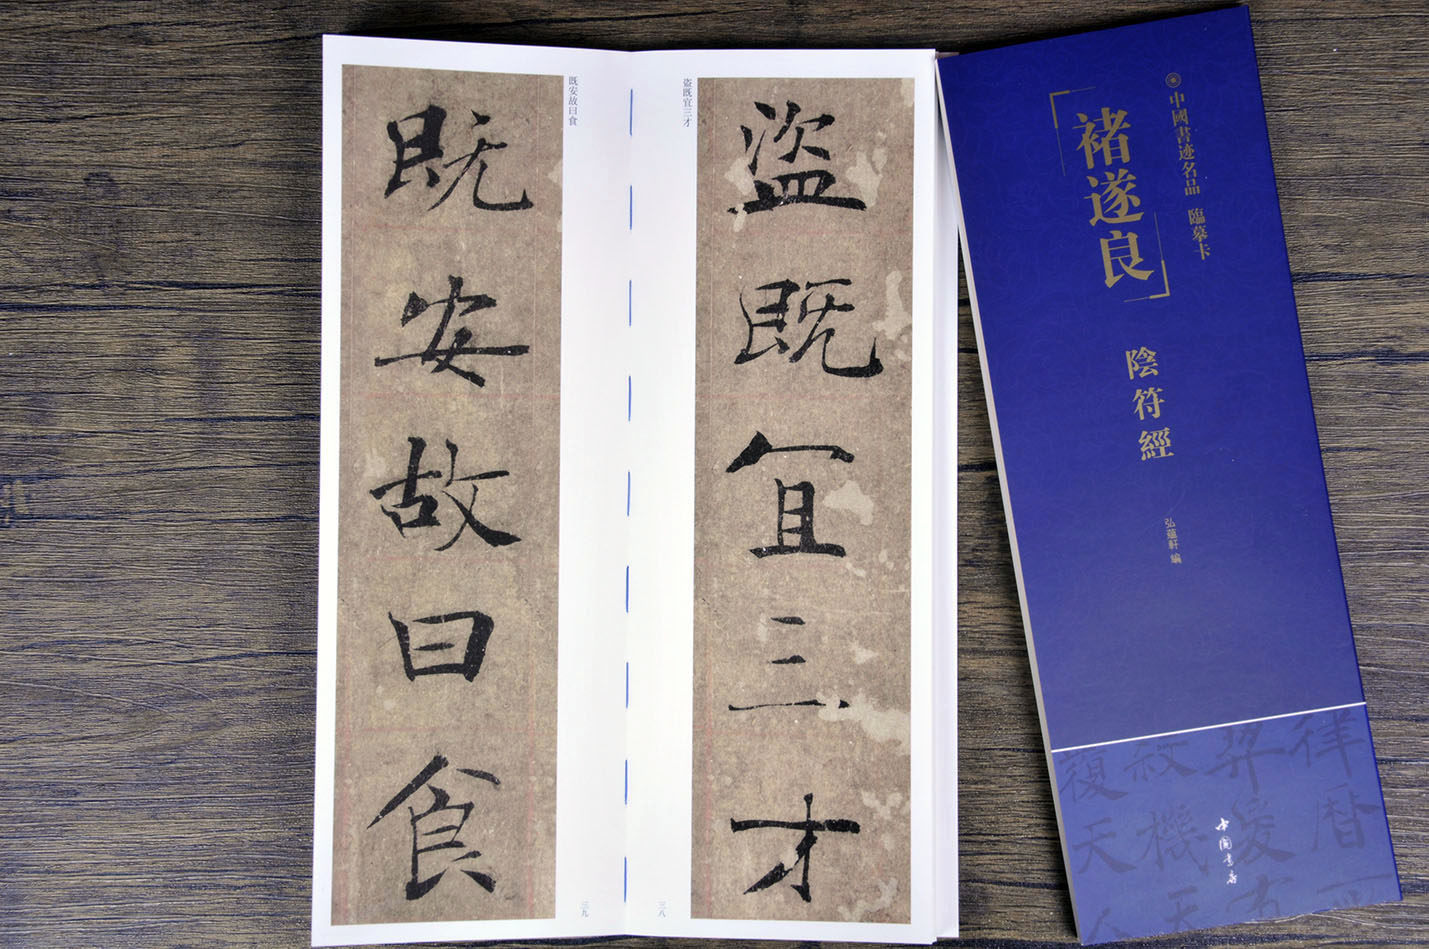 中國書迹名品 臨摹卡
褚遂良
陰符經
弘蘊軒 編
律曆
契爰有
殺機天
天人
中國書店
盗既宜三才
盗既宜三才
三八
既安故曰食
既安故曰食
三九